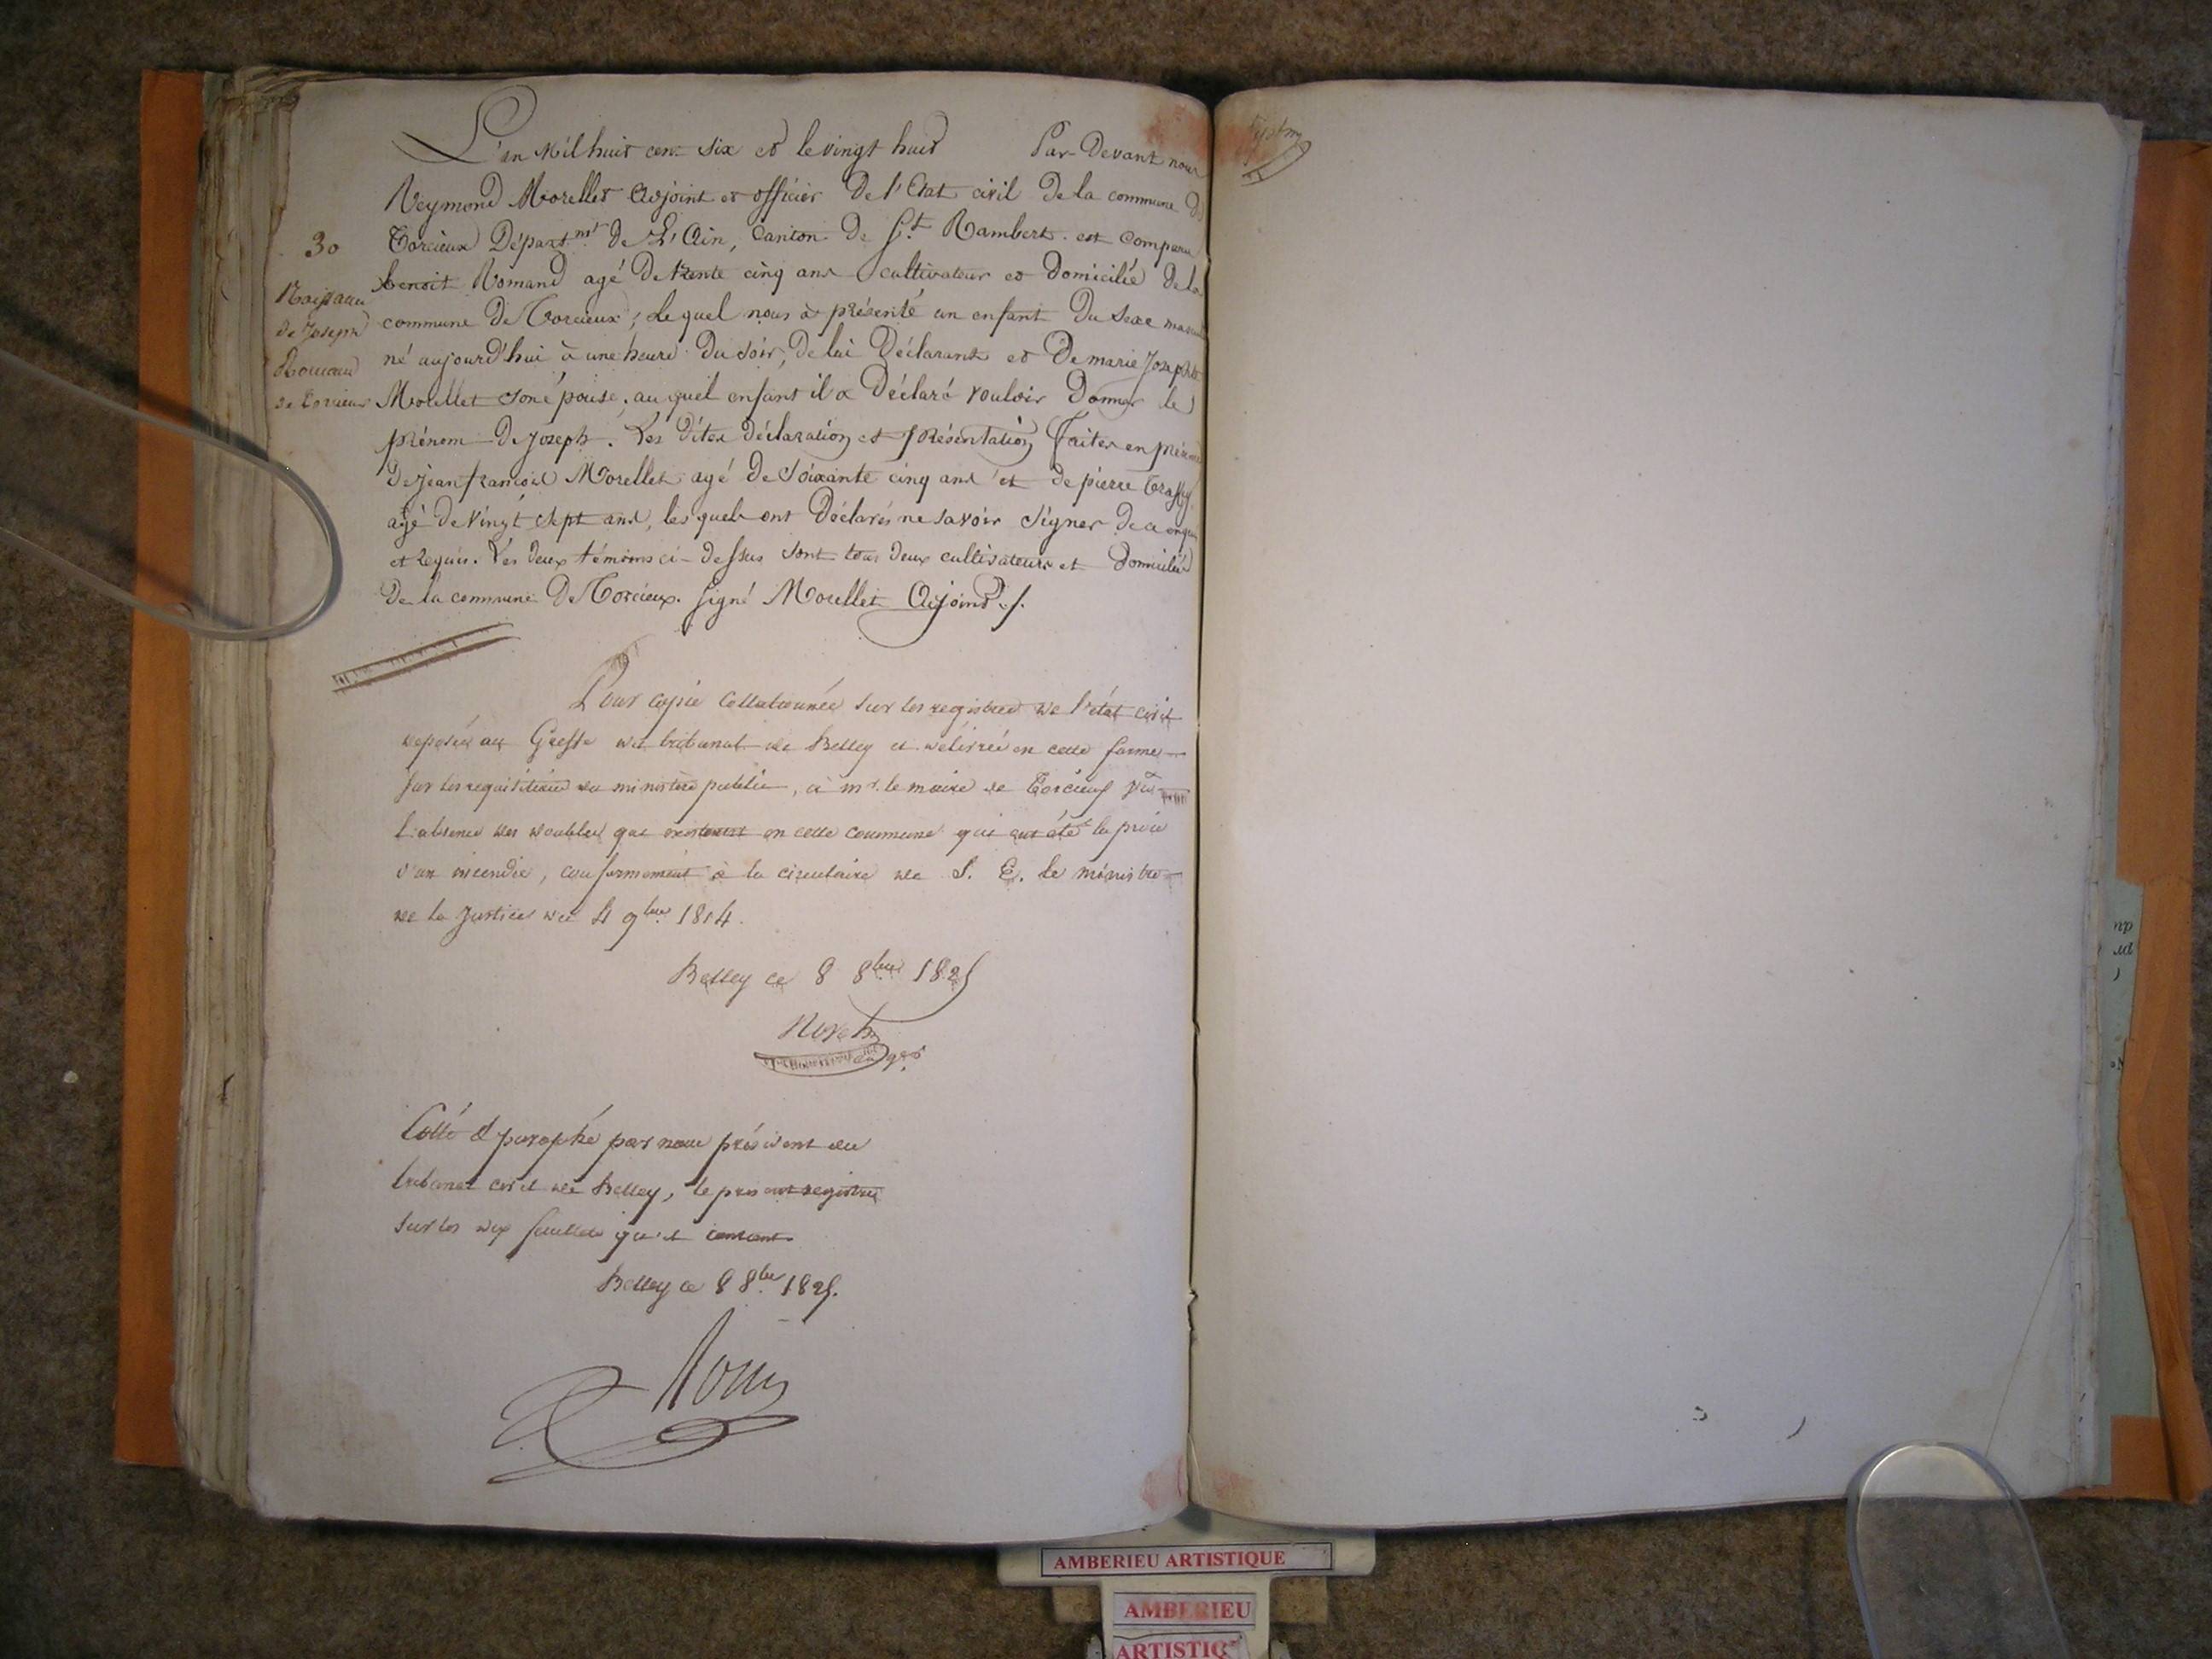 L'an Mil huit cent six et le vingt huit Par-Devant nous
Reymond Morellet Adjoint et officier De l'Etat civil De la commune De
Torcieux Départ.mt De L'Ain, Canton De St. Rambert. est Comparu
30
benoit Romand agé De trente cinq ans cultivateur et Domicilié De la
commune De Torcieux; Le quel nous à présenté un enfant Du Sexe
Naissance
de Joseph
Romand
de Torcieux
né aujourd'hui à une heure Du Soir, De lui Déclarant et De marie Josephte
Morellet son épouse, au quel enfant il a Déclaré vouloir Donner le
prénom De Joseph. Les Dites déclaration et présentation Faites en
De jean françois Morellet agé de Soixante cinq ans et de pierre
agé De vingt sept ans, les quels ont Déclarés ne savoir Signer De ce
et requis. Les deux témoins ci-Dessus sont tous Deux cultivateurs et Domiciliés
De la commune De Torcieux. Signé Morellet Adjoint ./.
Pour copie Collationnée sur les registres de l'état civil
deposés au Greffe du tribunal de Belley et délivrée en cette forme
sur les requisitions du ministère public, à mr. le maire de Torcieux vû
l'absence des doubles qui existaient en cette commune qui ont été la proie
d'un incendie, conformement à la circulaire de S. E. le ministre
de la Justice du 4 9bre 1814.
Belley ce 8 8bre 1825
Coté et paraphé par nous président du
tribunal civil de Belley, le présent registre
sur les dix feuillets qu'il contient
Belley ce 8 8bre 1825.
AMBERIEU ARTISTIQUE
AMBERIEU
ARTISTIQ